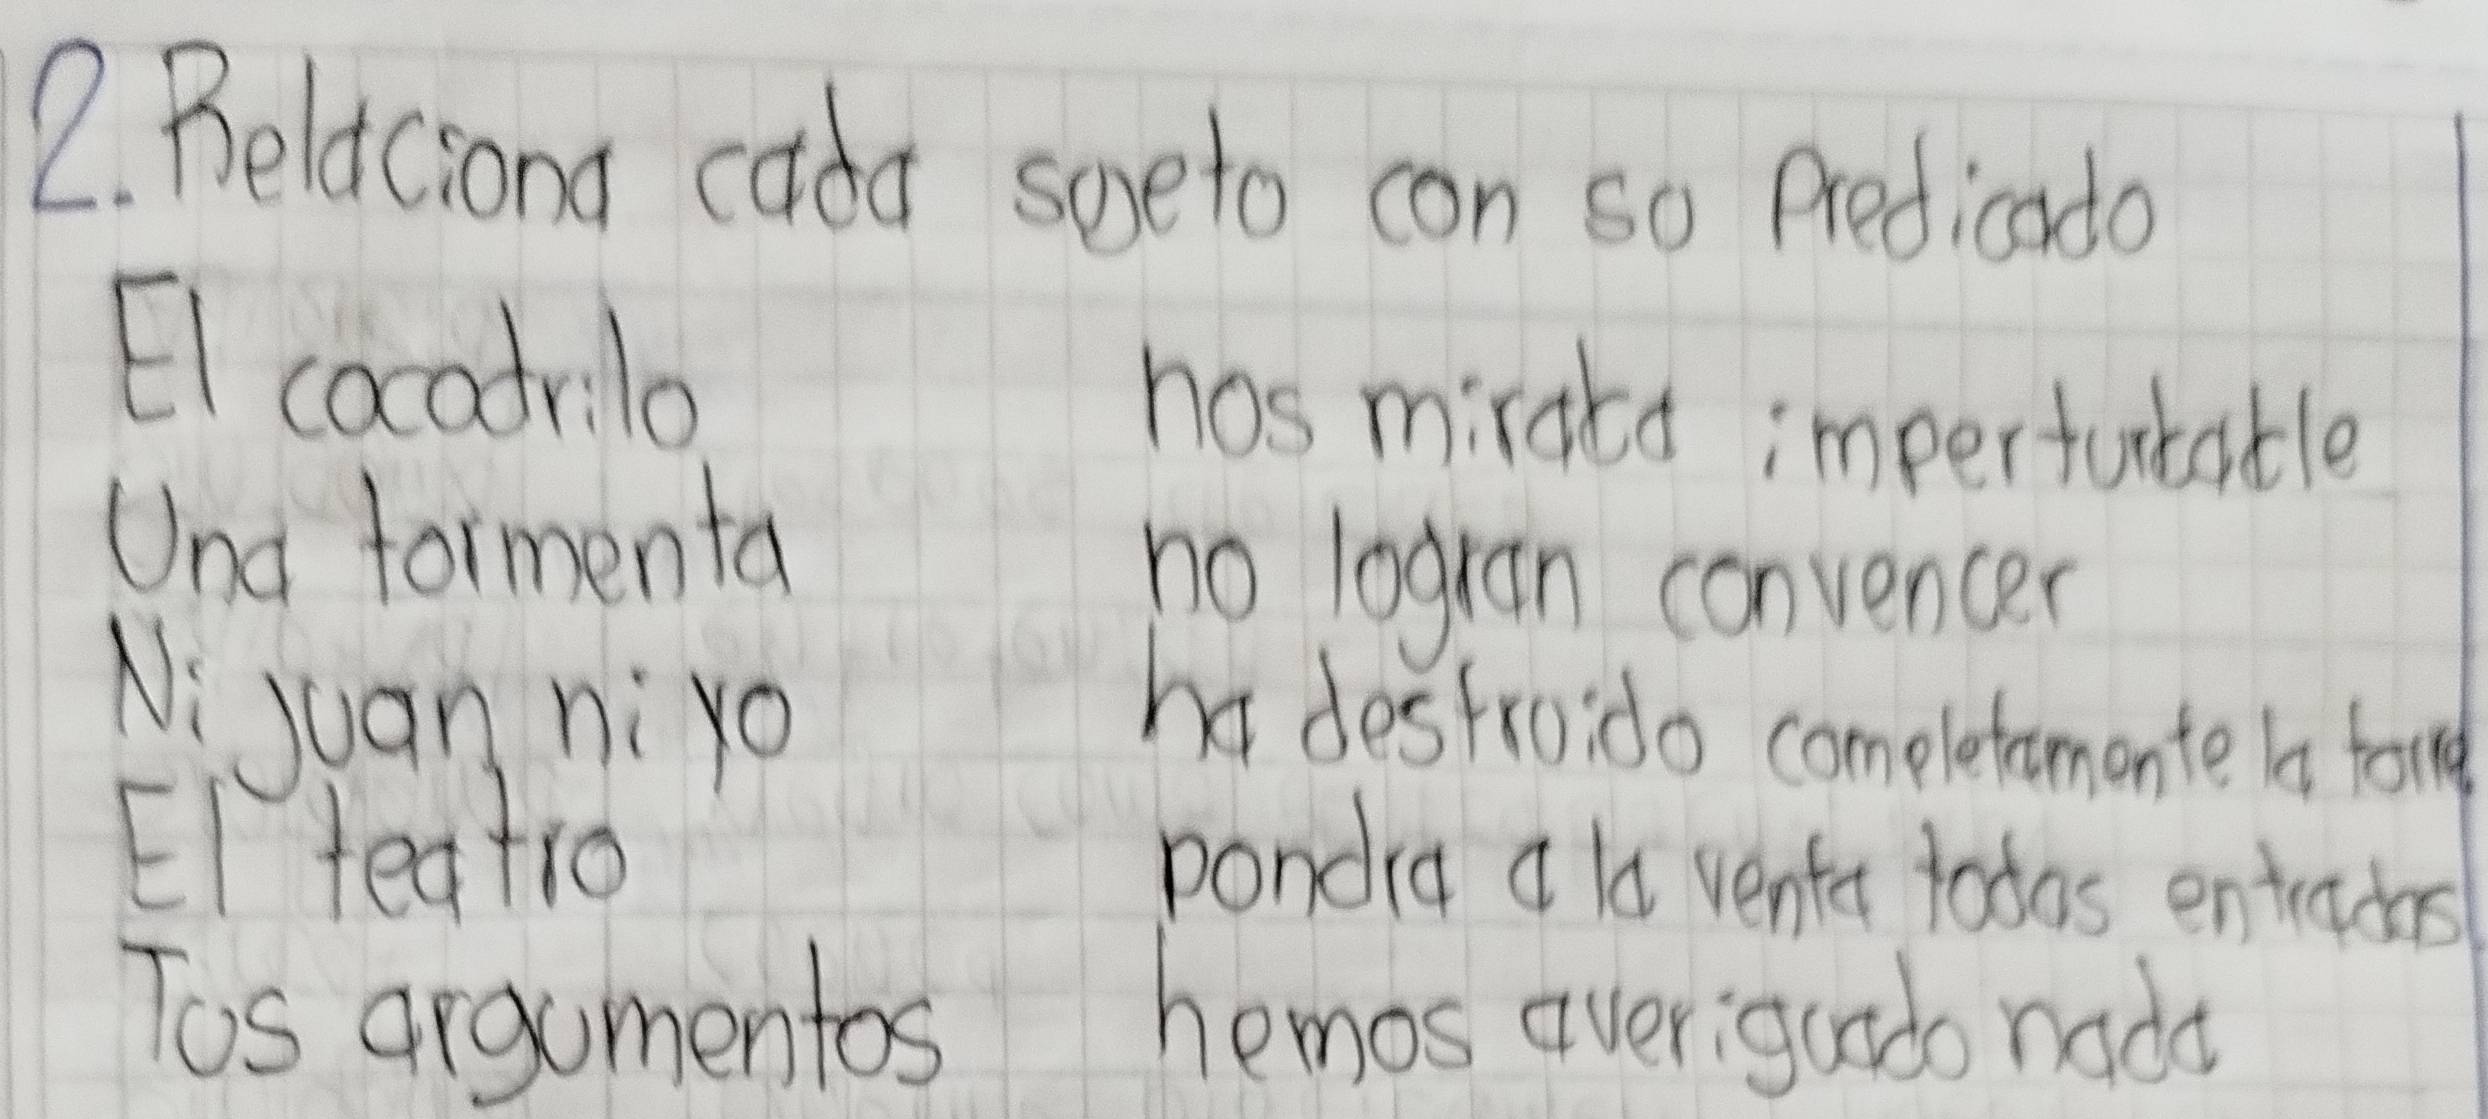 2. Relaciona cada sujeto con su predicado
El cocodrilo nos miraba imperturbable
Una tormenta no logran convencer
Ni juan ni yo ha destruido completamente la
El teatro pondra a la venta todas entradas
Tus argumentos hemos averiguado nada